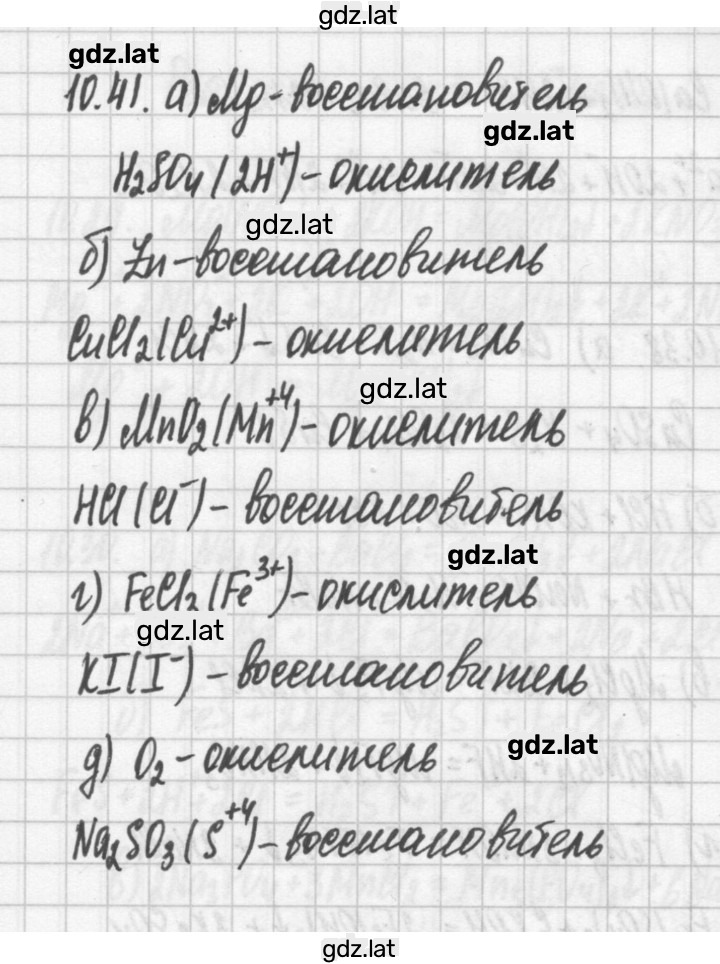 gdz.lat
gdz.lat
10.41. а) Mg - восстановитель
gdz.lat
H2SO4 (2H+) - окислитель
gdz.lat
б) Zn - восстановитель
CuCl2 (Cu2+) - окислитель
gdz.lat
в) MnO2 (Mn+4) - окислитель
HCl (Cl-) - восстановитель
gdz.lat
г) FeCl2 (Fe3+) - окислитель
gdz.lat
KI (I-) - восстановитель
gdz.lat
д) O2 - окислитель
Na2SO3 (S+4) - восстановитель
gdz.lat